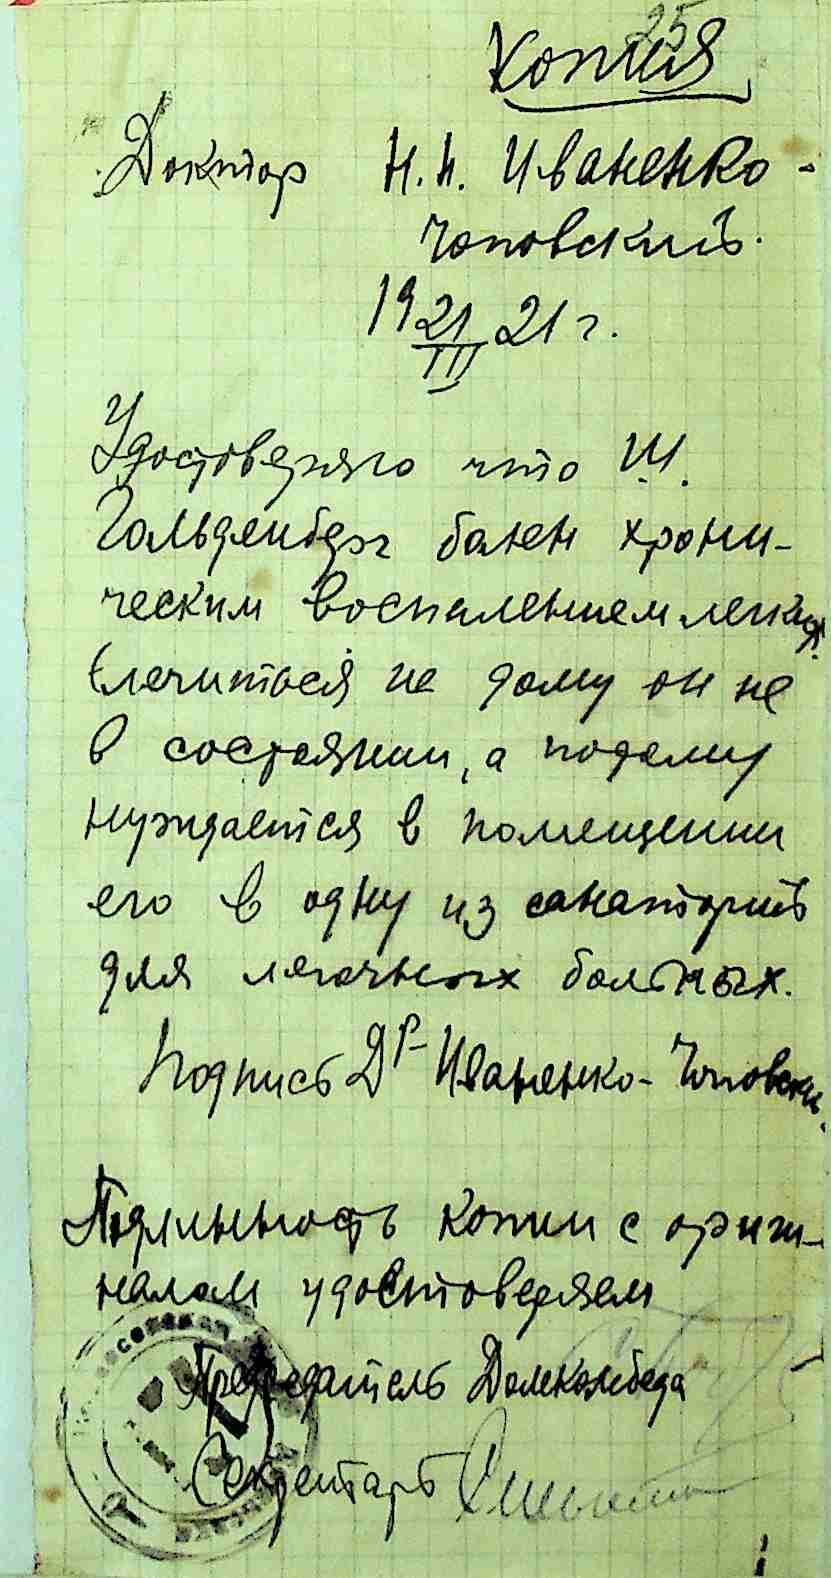 25
Копия
Доктор Н.И. Иваненко-
Чоповский.
19 21/III 21 г.
Удостоверяю что Ш.
Гольденберг болен хрони-
ческим воспалением легких.
Лечиться не дому он не
в состоянии, а подому
нуждается в помещении
его в одну из санаторий
для легочных больных.
Подпись Др- Иваненко-Чоповски
Подлинность копии с ориги-
налом удостоверяем
Председатель Домкомбеда
Секретарь